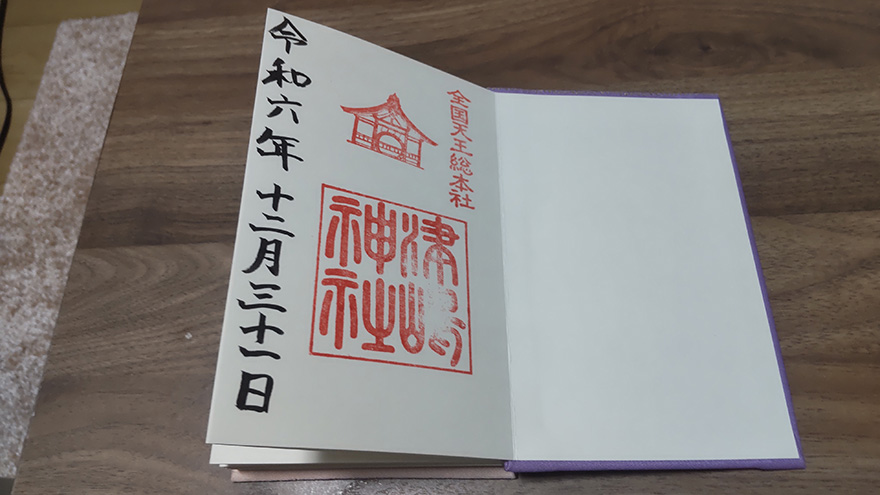 全国天王総本社
津嶋
神社
令和六年十二月三十一日